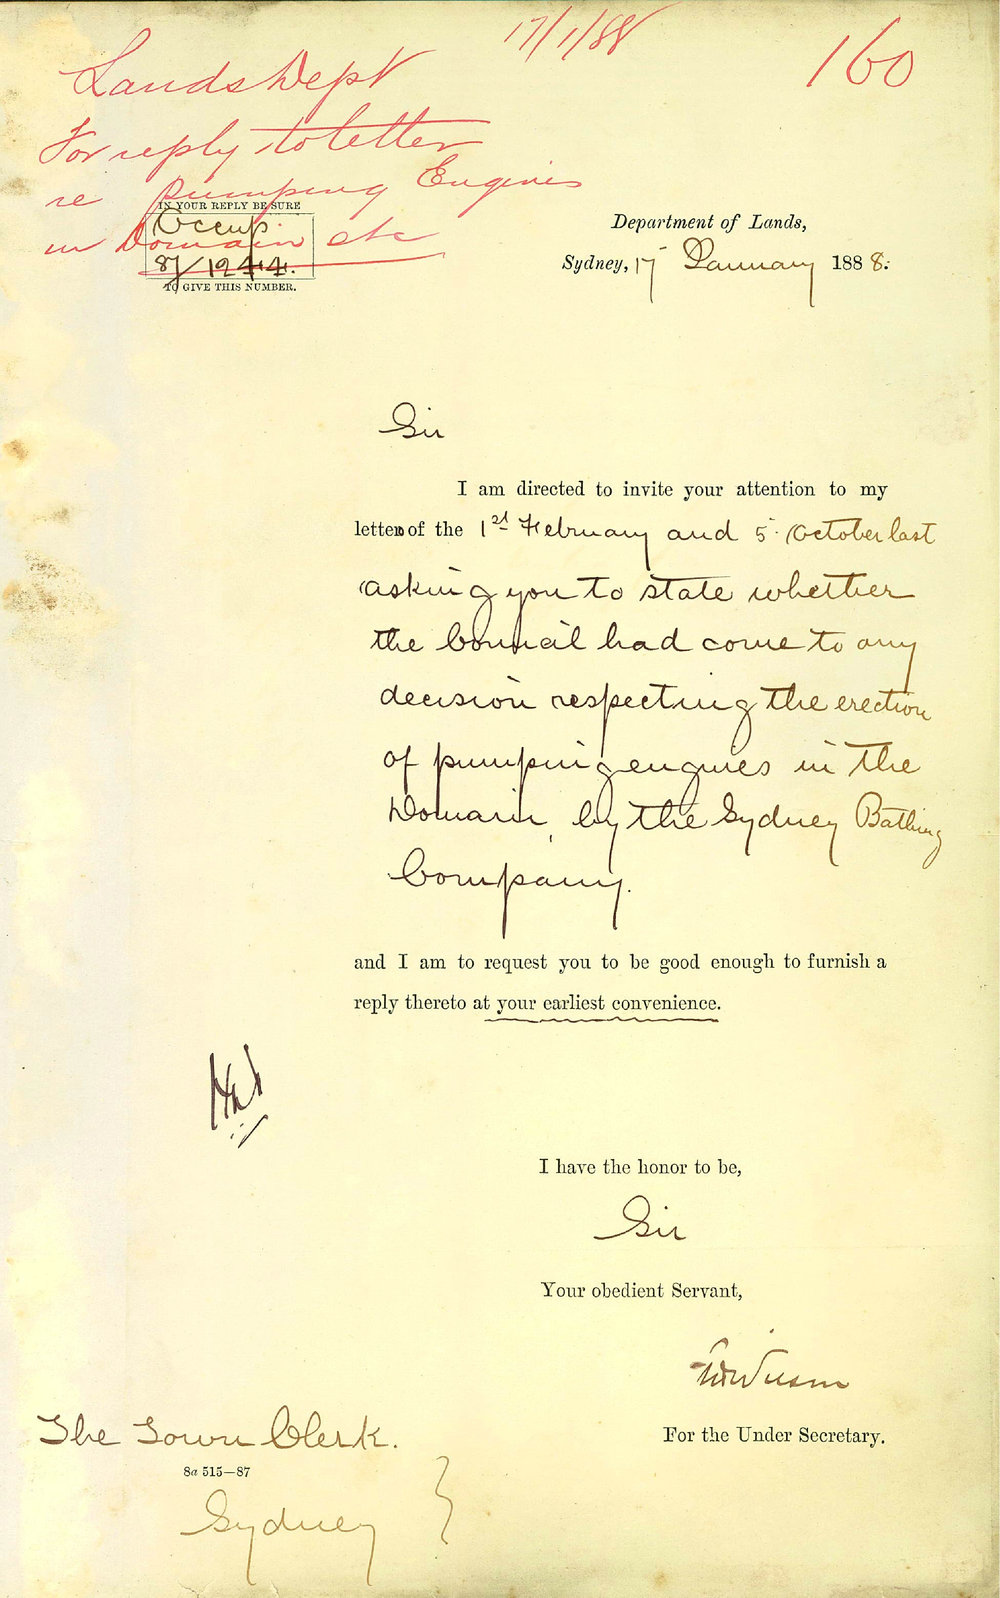 17/1/88
160
Lands Dept
For reply to letter
re pumping Engines
in Domain etc
IN YOUR REPLY BE SURE
Occup.
87/1244.
TO GIVE THIS NUMBER.
Department of Lands,
Sydney, 17 January 1888.
Sir
I am directed to invite your attention to my
letters of the 1st February and 5 October last
asking you to state whether
the Council had come to any
decision respecting the erection
of pumping engines in the
Domain, by the Sydney Bathing
Company.
and I am to request you to be good enough to furnish a
reply thereto at your earliest convenience.
I have the honor to be,
Sir
Your obedient Servant,
For the Under Secretary.
The Town Clerk.
8a 515—87
Sydney }